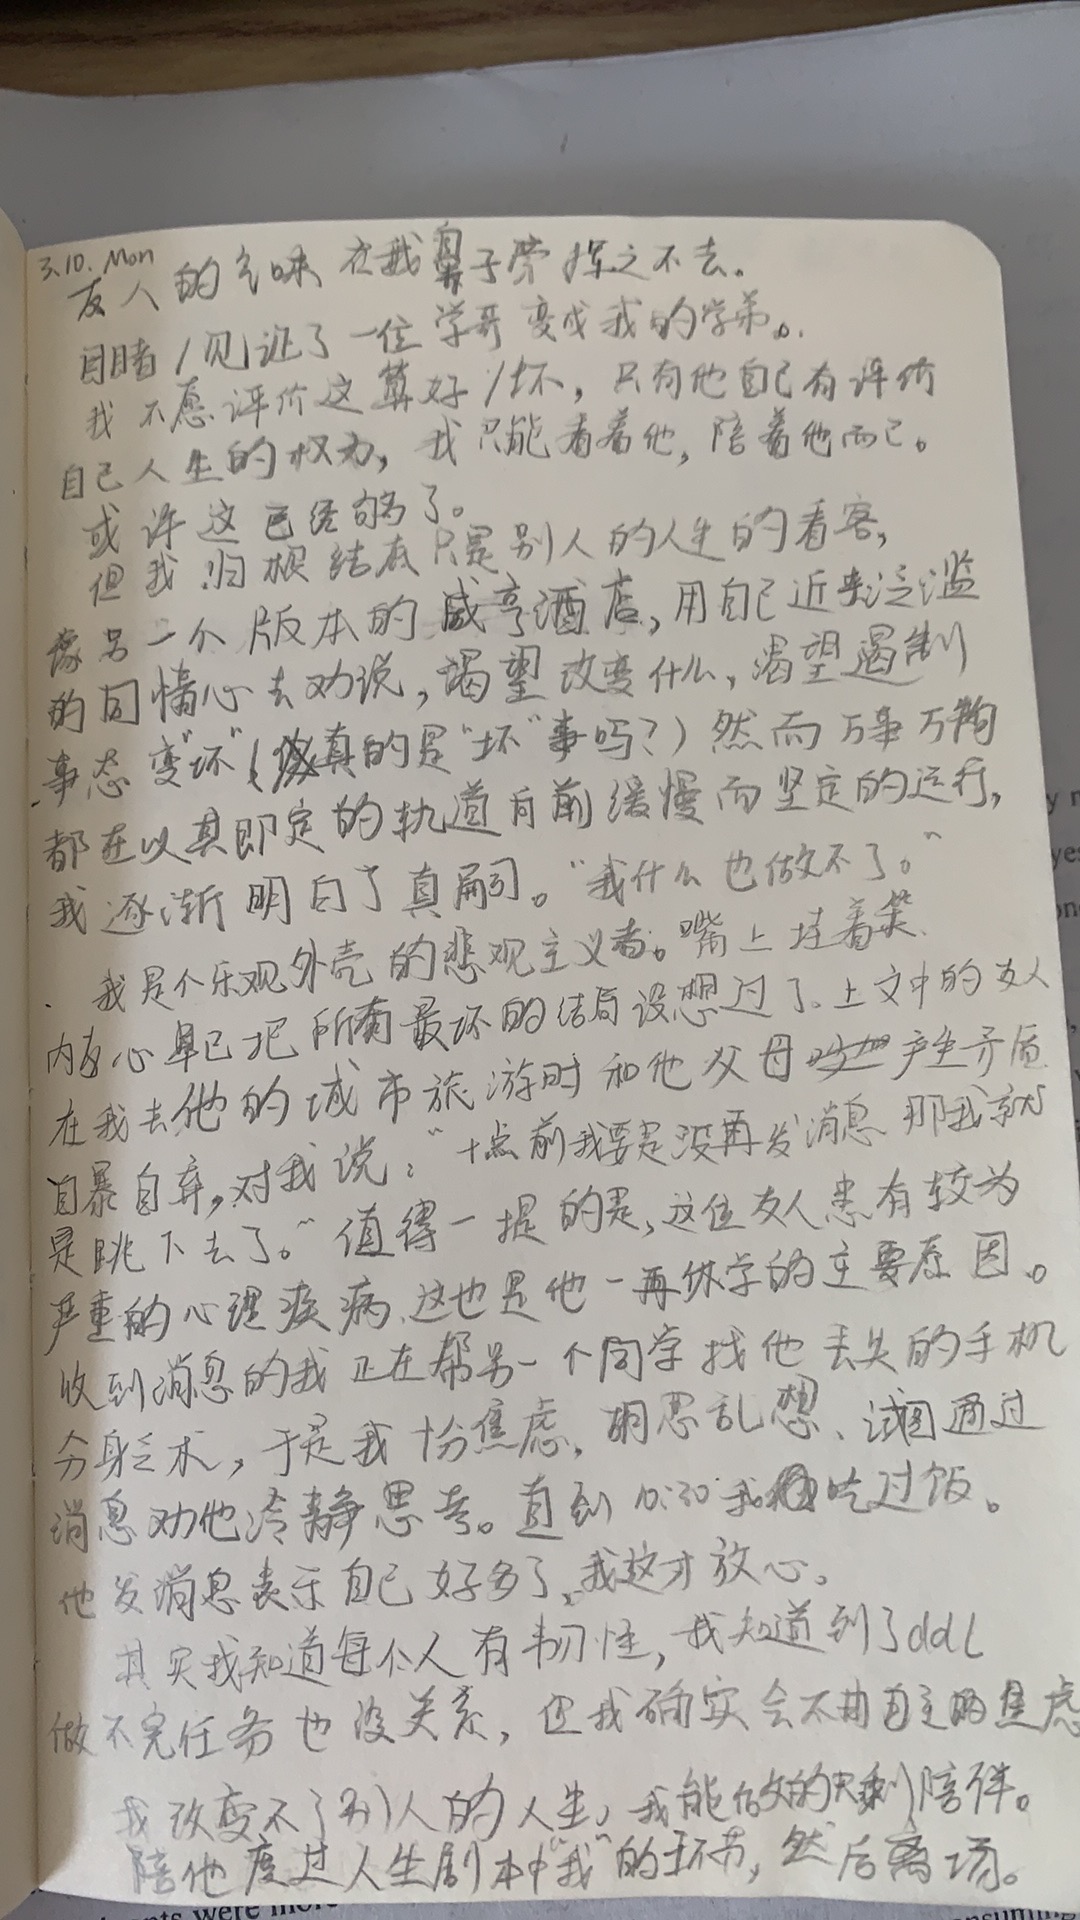 3.10. Mon
友人的气味在我鼻子旁挥之不去。
目睹/见证了一位学哥变成我的学弟。
我不愿评价这算好/坏，只有他自己有评价
自己人生的权力，我只能看着他，陪着他而已。
或许这已经够了。
但我归根结底只是别人的人生的看客，
像另一个版本的咸亨酒店，用自己近来泛滥
的同情心去劝说，渴望改变什么，渴望遏制
事态变"坏"（真的是"坏"事吗？）然而万事万物
都在以其即定的轨道向前缓慢而坚定的运行，
我逐渐明白了真嗣。"我什么也做不了。"
我是个乐观外壳的悲观主义者。嘴上挂着笑、
内心早已把所有最坏的结局设想过了。上文中的友人
在我去他的城市旅游时和他父母产生矛盾
自暴自弃，对我说："十点前我要是没再发消息那我就
是跳下去了。"值得一提的是，这位友人患有较为
严重的心理疾病、这也是他一再休学的主要原因。
收到消息的我正在帮另一个同学找他丢失的手机
分身乏术，于是我十分焦虑，胡思乱想、试图通过
消息劝他冷静思考。直到10:30我吃过饭。
他发消息表示自己好多了，我这才放心。
其实我知道每个人有韧性，我知道到了ddl
做不完任务也没关系，但我确实会不由自主的焦虑
我改变不了别人的人生，我能做的只剩陪伴。
陪他度过人生剧本中"我"的环节，然后离场。